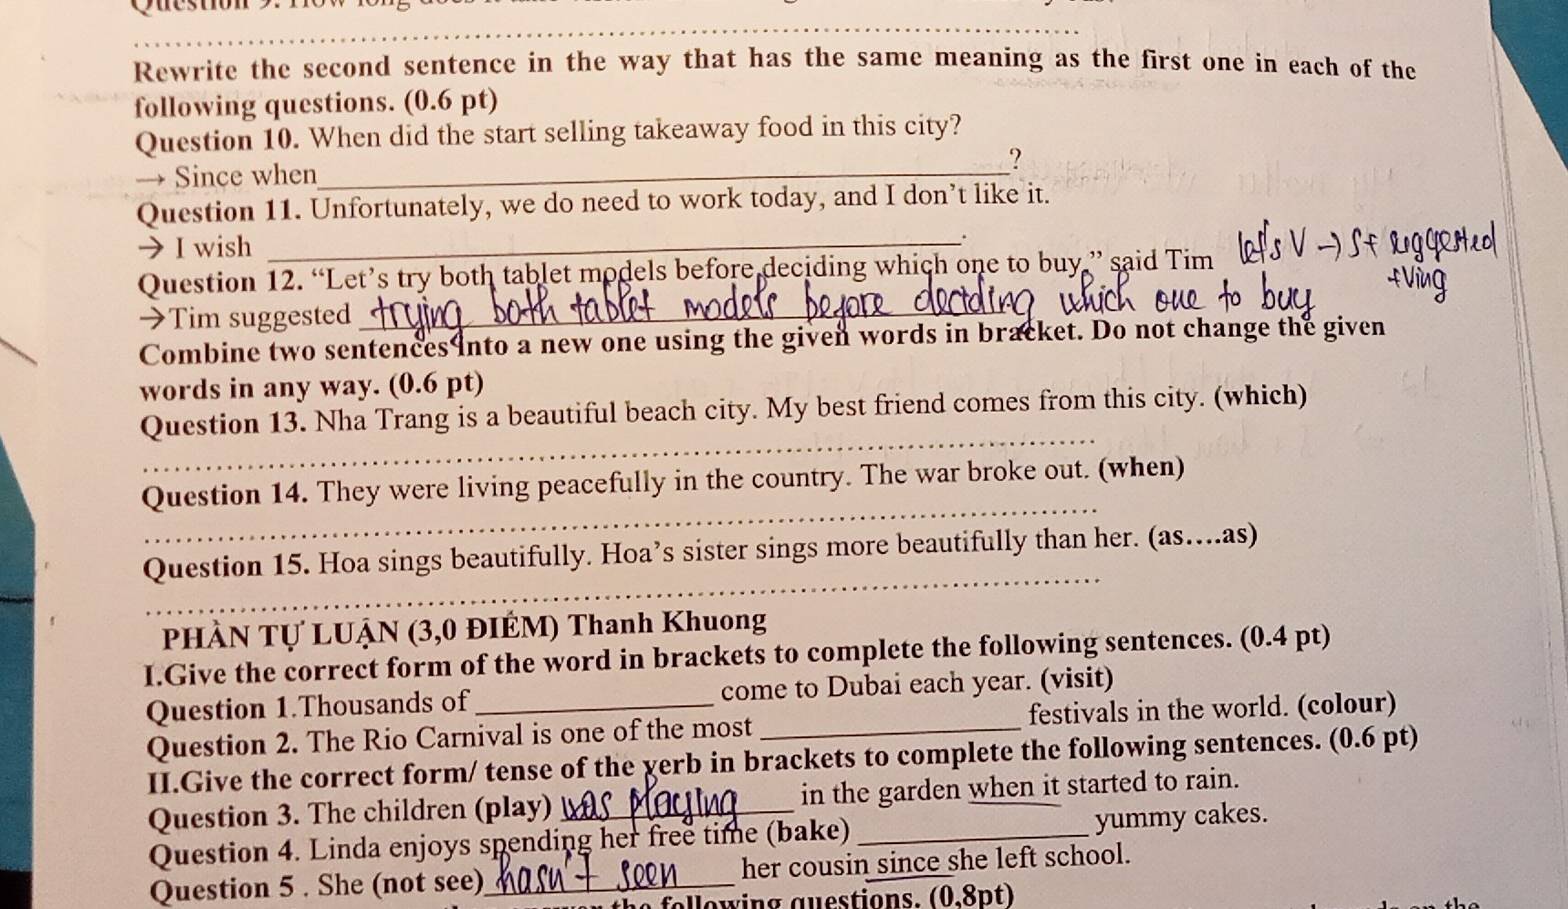 Rewrite the second sentence in the way that has the same meaning as the first one in each of the
following questions. (0.6 pt)
Question 10. When did the start selling takeaway food in this city?
→ Since when ?
Question 11. Unfortunately, we do need to work today, and I don't like it.
→ I wish .
Question 12. “Let's try both tablet models before deciding which one to buy,” said Tim let's V → S + suggested
+ Ving
→Tim suggested trying both tablet models before deciding which one to buy
Combine two sentences into a new one using the given words in bracket. Do not change the given
words in any way. (0.6 pt)
Question 13. Nha Trang is a beautiful beach city. My best friend comes from this city. (which)
Question 14. They were living peacefully in the country. The war broke out. (when)
Question 15. Hoa sings beautifully. Hoa's sister sings more beautifully than her. (as….as)
PHẦN TỰ LUẬN (3,0 ĐIỂM) Thanh Khuong
I.Give the correct form of the word in brackets to complete the following sentences. (0.4 pt)
Question 1.Thousands of ________ come to Dubai each year. (visit)
Question 2. The Rio Carnival is one of the most ________ festivals in the world. (colour)
II.Give the correct form/ tense of the verb in brackets to complete the following sentences. (0.6 pt)
Question 3. The children (play) was playing in the garden when it started to rain.
Question 4. Linda enjoys spending her free time (bake) ________ yummy cakes.
Question 5 . She (not see) hasn't seen her cousin since she left school.
the following questions. (0,8pt)